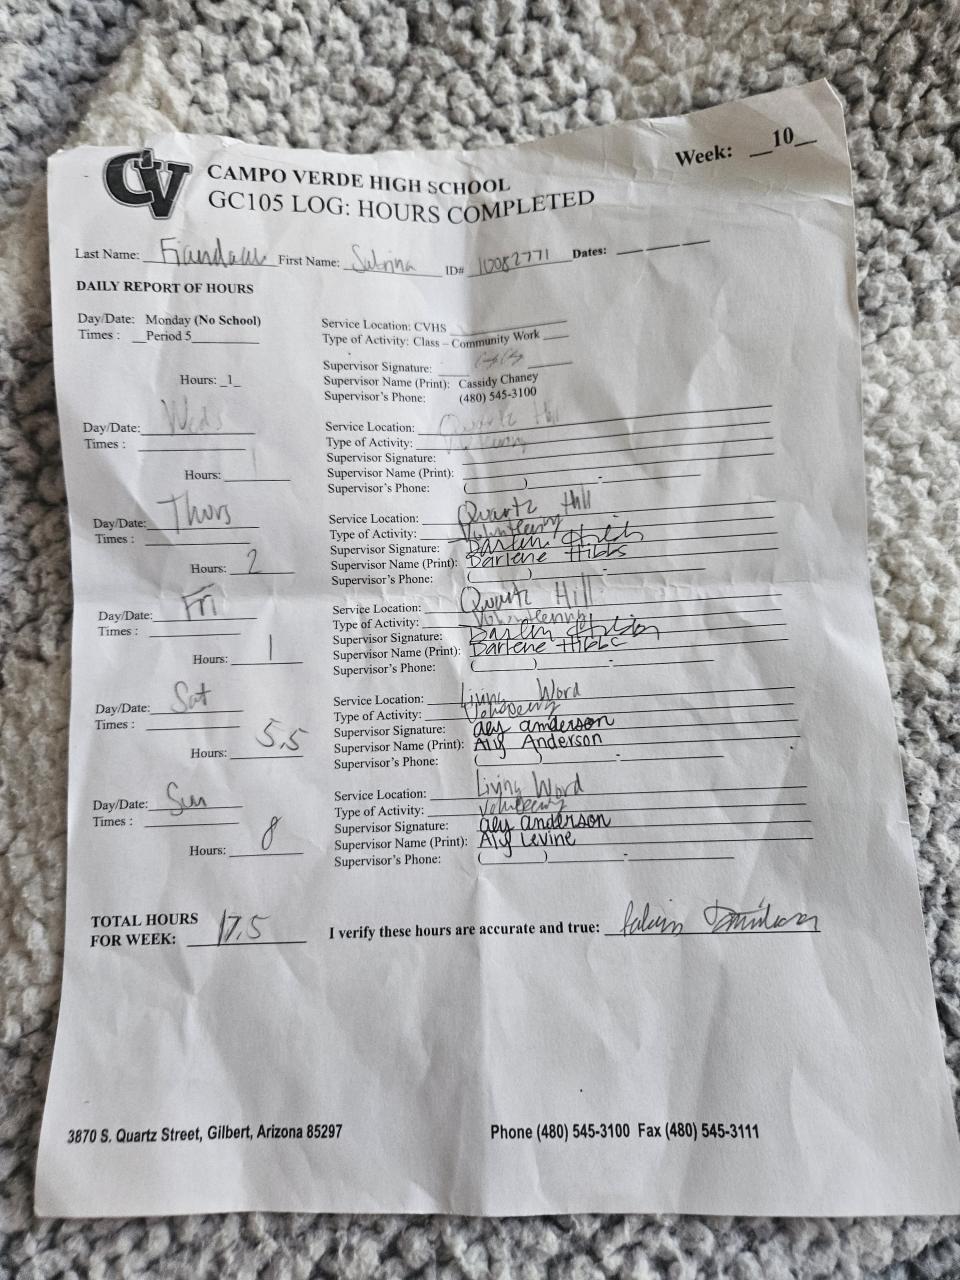 Week: __10__
CV CAMPO VERDE HIGH SCHOOL
GC105 LOG: HOURS COMPLETED
Last Name: First Name: Sabrina ID# 10082771 Dates: ___ ___ ___
DAILY REPORT OF HOURS
Day/Date: Monday (No School) Service Location: CVHS
Times : __Period 5__ Type of Activity: Class – Community Work
Supervisor Signature:
Hours: _1_ Supervisor Name (Print): Cassidy Chaney
Supervisor's Phone: (480) 545-3100
Day/Date: Weds Service Location: Quartz Hill
Times : Type of Activity:
Supervisor Signature:
Hours: 1 Supervisor Name (Print):
Supervisor's Phone: ( ) -
Day/Date: Thurs Service Location: Quartz Hill
Times : Type of Activity: Volunteering
Supervisor Signature: Darlen
Hours: 2 Supervisor Name (Print): Darlene Hibbs
Supervisor's Phone: ( ) -
Day/Date: Fri Service Location: Quartz Hill
Times : Type of Activity: Volunteering
Supervisor Signature: Darlen
Hours: 1 Supervisor Name (Print): Darlene Hibbs
Supervisor's Phone: ( ) -
Day/Date: Sat Service Location: Living Word
Times : Type of Activity:
Supervisor Signature: aly anderson
Hours: 5.5 Supervisor Name (Print): Aly Anderson
Supervisor's Phone: ( ) -
Day/Date: Sun Service Location: Living Word
Times : Type of Activity:
Supervisor Signature: aly anderson
Hours: 8 Supervisor Name (Print): Aly Levine
Supervisor's Phone: ( ) -
TOTAL HOURS
FOR WEEK: 17.5 I verify these hours are accurate and true:
3870 S. Quartz Street, Gilbert, Arizona 85297 Phone (480) 545-3100 Fax (480) 545-3111